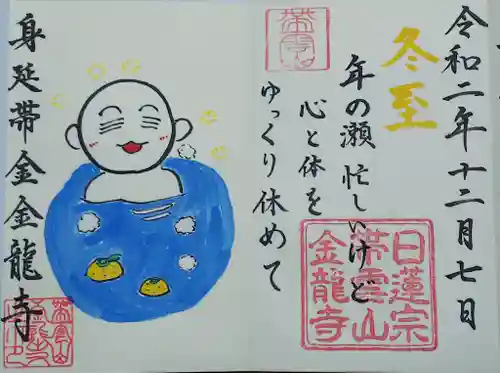 令和二年十二月七日
冬至
年の瀬 忙しいけど
心と体を
ゆっくり休めて
帯雲山
日蓮宗
帯雲山
金龍寺
身延帯金金龍寺